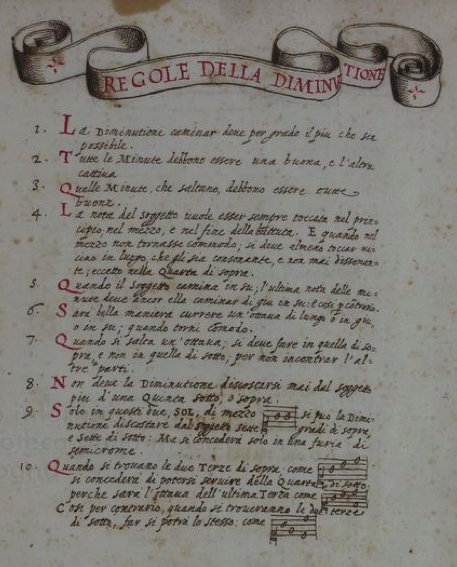 REGOLE DELLA DIMINUTIONE
1. La Diminutione caminar deve per grado il piu che sia
possibile.
2. Tutte le Minute debbono essere una buona, e l'altra
cattiva
3. Quelle Minute, che saltano, debbono essere tutte
buone.
4. La nota del soggetto vuole esser sempre toccata nel prin-
cipio, nel mezzo, e nel fine della battuta. E quando nel
mezzo non tornasse commodo; si deve almeno toccar vi-
cino in luogo, che gli sia consonante, e non mai dissonan-
te; eccetto nella Quarta di sopra.
5. Quando il soggetto camina in su; l'ultima nota delle mi-
nute deve ancor ella caminar di giu in su: e cosi p contrario.
6. Sarà bella maniera currere un'ottava di lungo ò in giu,
o in su; quando torni comodo.
7. Quando si salta un'ottava; si deve fare in quella di so-
pra, e non in quella di sotto; per non incontrar l'al-
tre parti.
8. Non deve la Diminutione discostarsi mai dal soggetto
piu d'una Quinta sotto, o sopra.
9. Solo in questi due, SOL, di mezzo si può la Dimi-
nutione discostare dal soggetto sette gradi di sopra,
e sette di sotto: Ma si concederà solo in una furia di
semicrome.
10. Quando si trovano le due Terze di sopra, come
si concederà di potersi servire della Quarta di sotto:
perche sarà l'ottava dell'ultima Terza come
Cosi per contrario, quando si troveranno le due terze
di sotto, far si potrà lo stesso: come